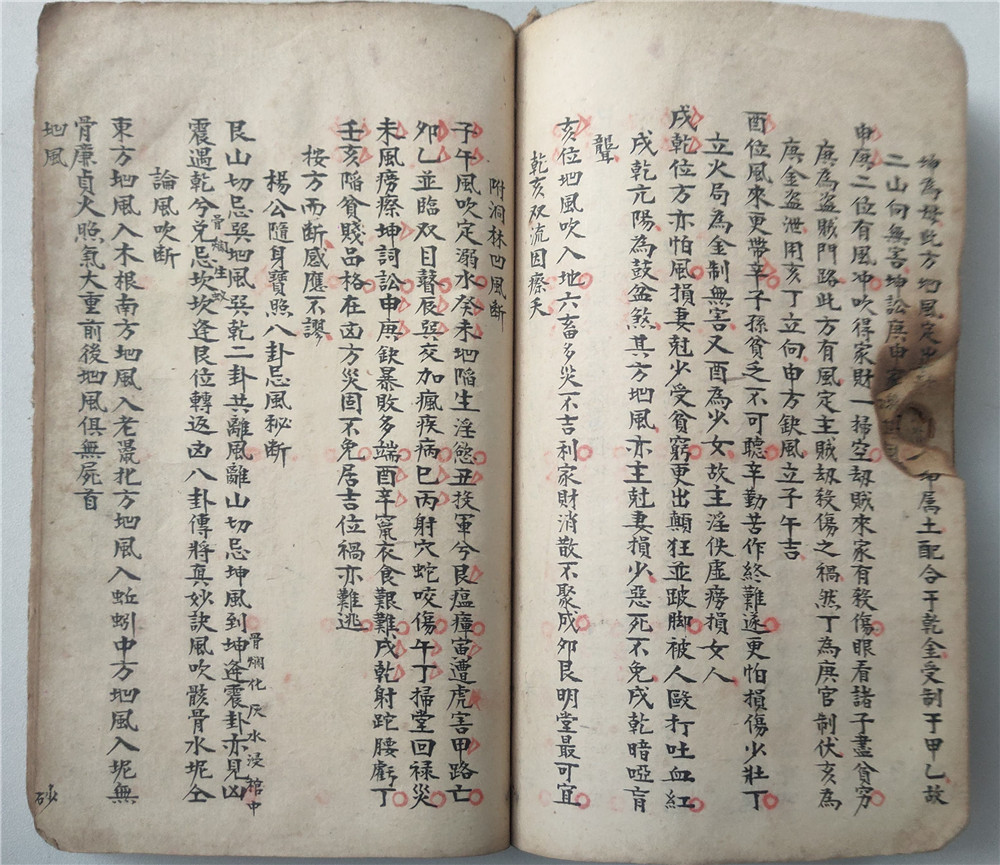 坤為母此方地風定出
卦属土配合于乾金受制于甲乙故
二山向無害坤訟庚申
申庚二位有風冲吹得家財一掃空刼賊來家有殺傷眼看諸子盡貧穷
庚為盗賊門路此方有風定主賊刼殺傷之禍然丁為庚官制伏亥為
庚金盗泄用亥丁立向申方缺風立子午吉
酉位風來更帶辛子孫貧乏不可聽辛勤苦作終難遂更怕損傷少壯丁
立火局為金制無害又酉為少女故主淫佚虚癆損女人
戌乾位方亦怕風損妻尅少受貧窮更出顛狂並跛脚被人毆打吐血紅
戌乾亢陽為鼓盆煞其方地風亦主尅妻損少惡死不免戌乾暗啞盲
聾
亥位地風吹入地六畜多災不吉利家財消散不聚成卯艮明堂最可宜
乾亥双流因瘵夭
附洞林凹風斷
子午風吹定溺水癸未地陷生淫慾丑投軍兮艮瘟㾤寅遭虎害甲路亡
卯乙並臨双目瞽辰巽交加瘋疾病巳丙射穴蛇咬傷午丁掃堂回禄災
未風癆瘵坤詞訟申庚缺暴敗多端酉辛窜衣食艱難戌乾射跎腰虧丁
壬亥陷貧賤品格在凶方災固不免居吉位禍亦難逃
按方而斷感應不謬
楊公隨身寶照八卦忌風秘斷
艮山切忌巽地風巽乾二卦共離風離山切忌坤風到坤逢震卦亦見凶
骨爛化灰水浸棺中
骨爛生蚁
震遇乾兮兑忌坎坎逢艮位轉返凶八卦傳將真妙訣風吹骸骨水坭仝
論風吹斷
東方地風入木根南方地風入老鼠北方地風入蚯蚓中方地風入坭無
骨廉貞火照氣大重前後地風俱無屍首
地風
砂